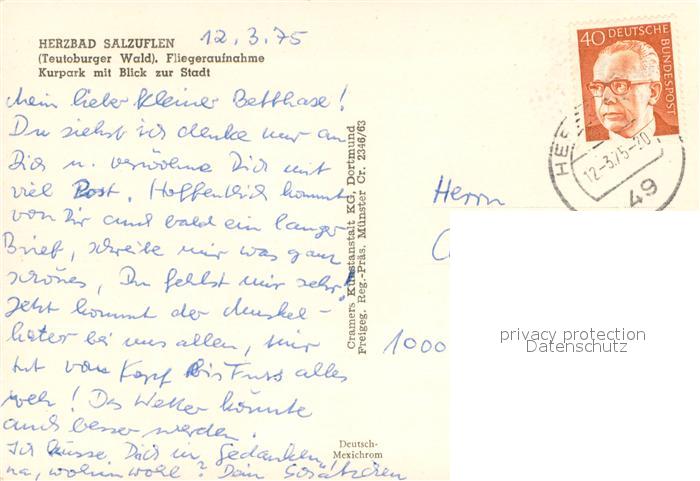 HERZBAD SALZUFLEN 12.3.75
(Teutoburger Wald), Fliegeraufnahme
Kurpark mit Blick zur Stadt
Mein lieber kleiner Betthase!
Du siehst ich denke nur an
Dich u. verwöhne Dich mit
viel Post. Hoffentlich kommt
von Dir auch bald ein langer
Brief, schreibe mir was ganz
schönes, Du fehlst mir sehr!
Jetzt kommt der Muskel-
kater bei uns allen, mir
tut von Kopf bis Fuss alles
weh! Das Wetter könnte
auch besser werden.
Ich küsse Dich in Gedanken!
na, wohin wohl? Dein Schätzchen
Cramers Kunstanstalt KG, Dortmund
Freigeg. Reg.-Präs. Münster Cr. 2346/63
Deutsch-
Mexichrom
40 DEUTSCHE
BUNDESPOST
12-3.75-20
49
Herrn
1000
privacy protection
Datenschutz